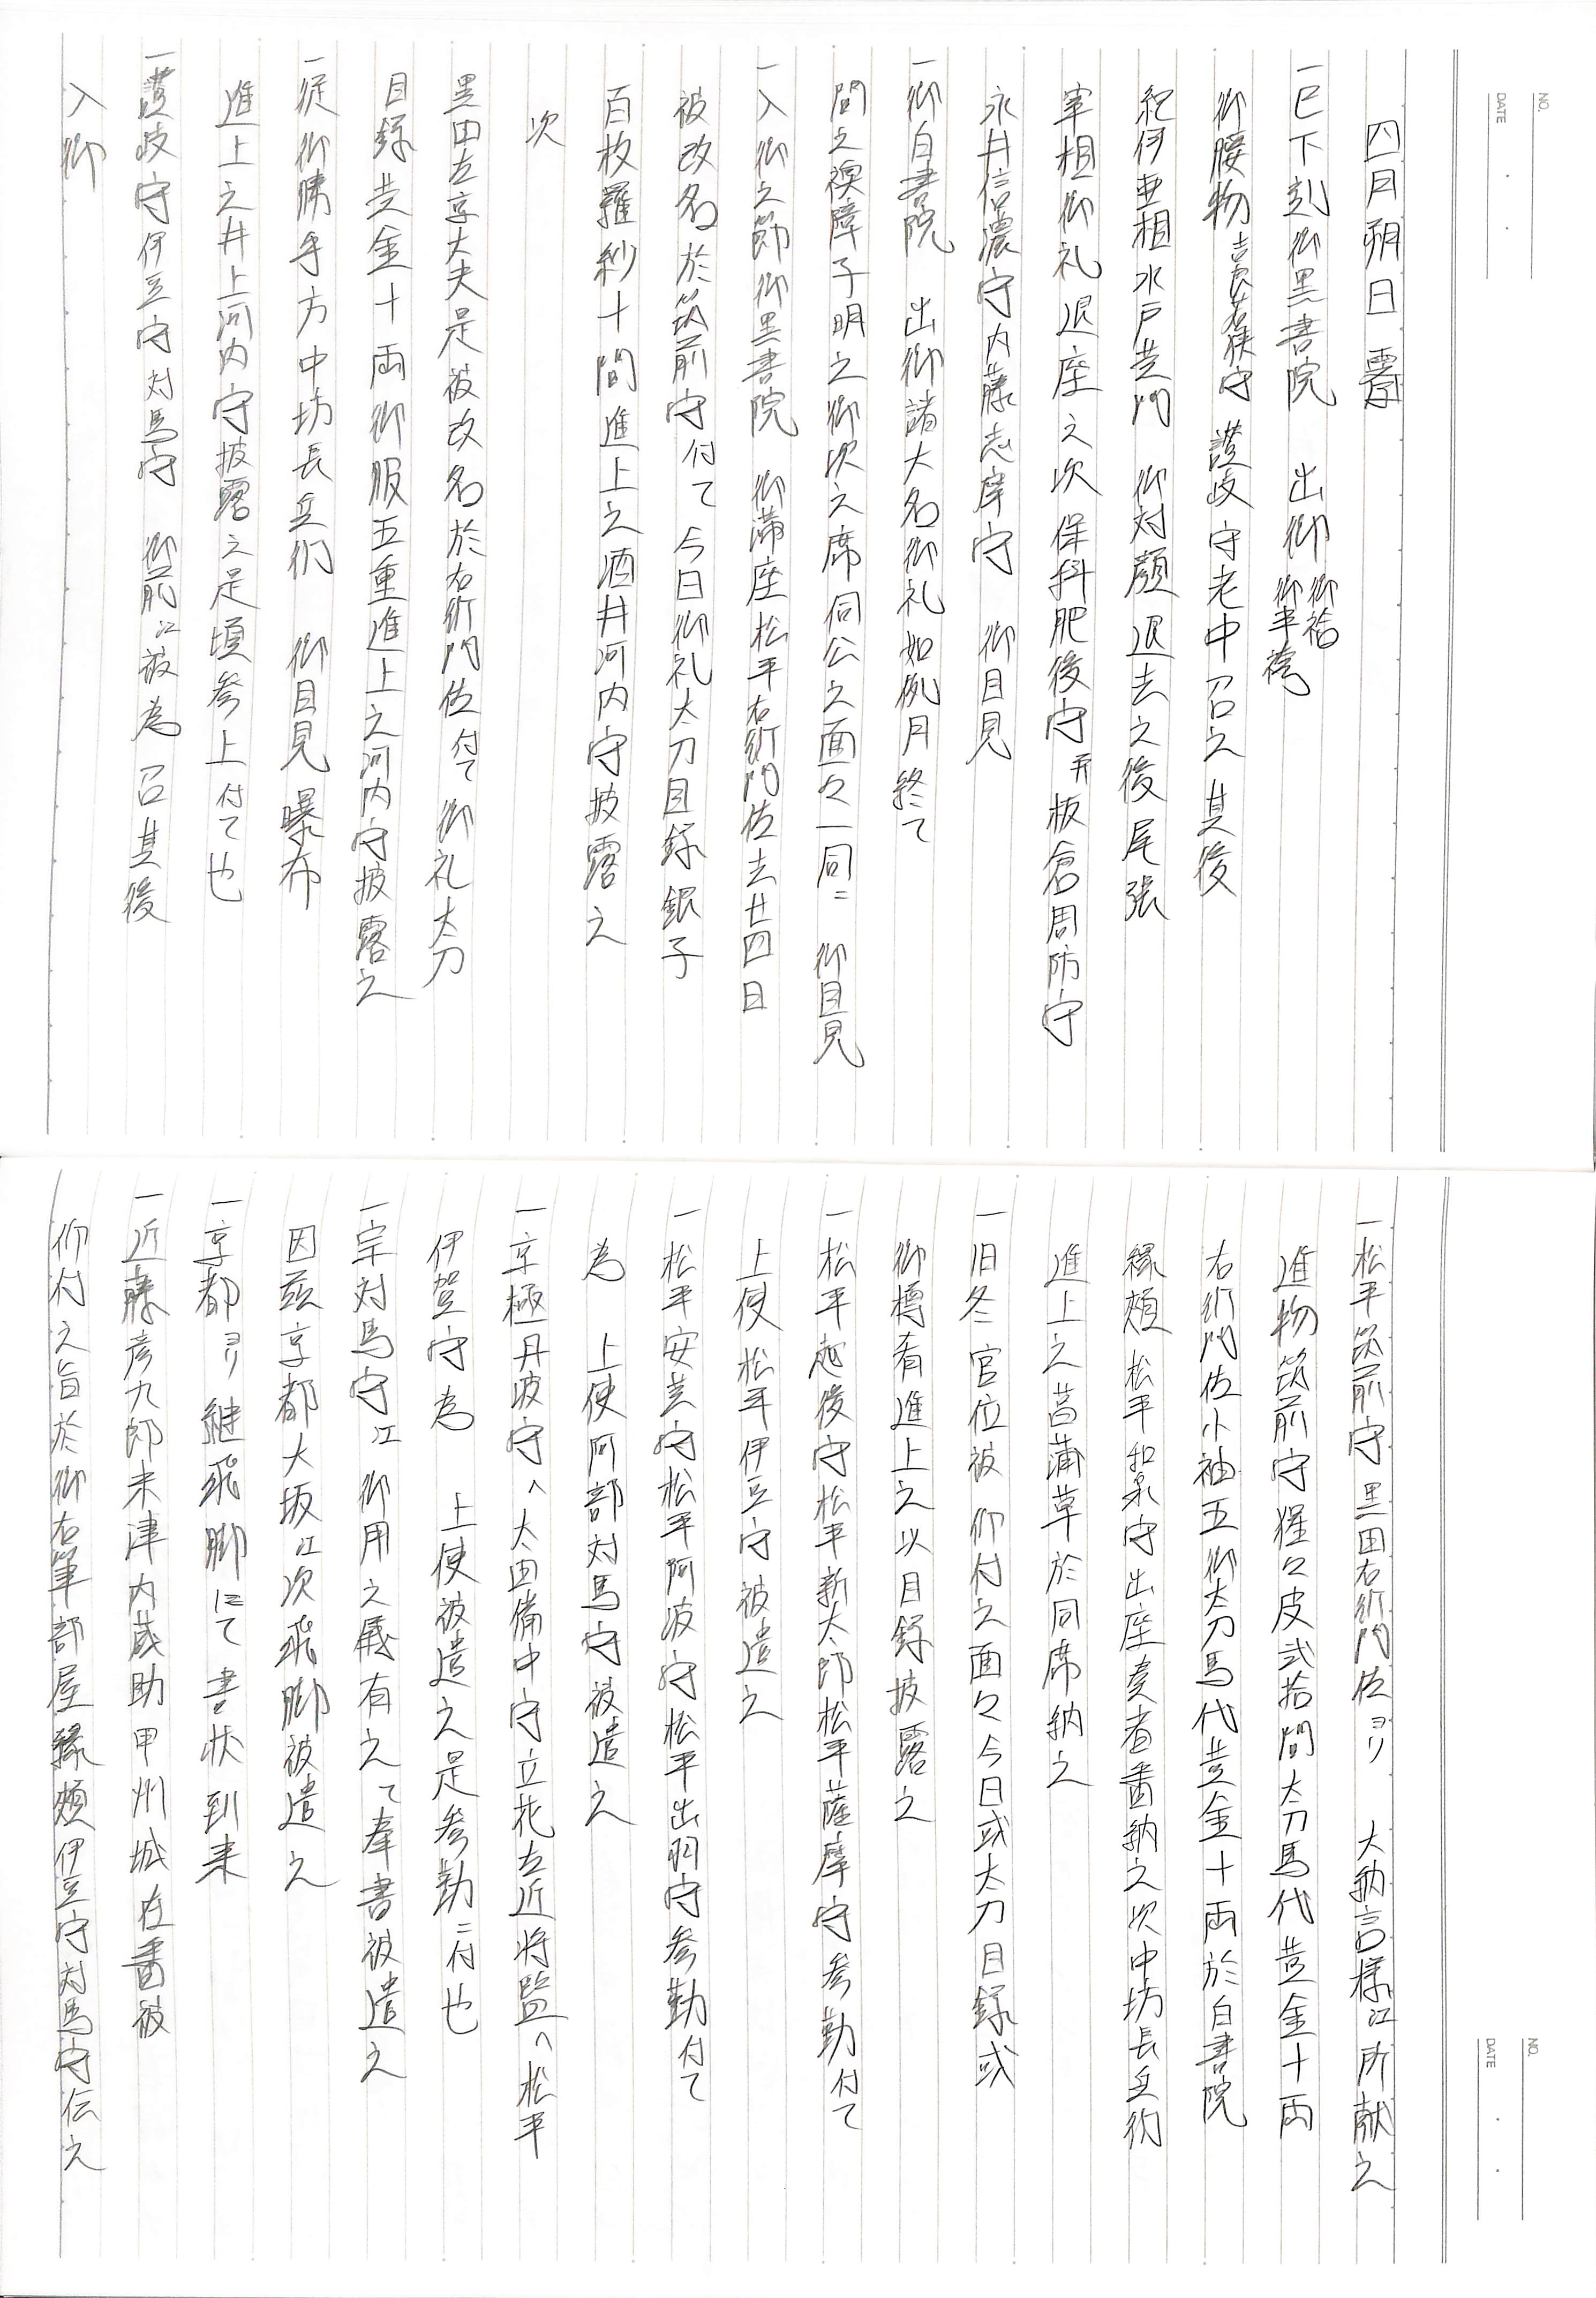 NO.
DATE
四月朔日 霽
一巳下刻御黒書院 出御 御袷 御半袴
御腰物 吉良若狭守 讃岐守老中召之其後
紀伊亜相水戸黄門 御対顔退去之後尾張
宰相御礼退座之次保科肥後守并板倉周防守
永井信濃守内藤志摩守 御目見
一御白書院 出御諸大名御礼如例月終て
間之襖障子明之御次之席伺公之面々一同ニ 御目見
一入御之節御黒書院 御滞座松平右衛門佐去廿四日
被改名於筑前守付て今日御礼太刀目録銀子
百枚羅紗十間進上之酒井河内守披露之
次
黒田左京大夫是被改名於右衛門佐付て御礼太刀
目録黄金十両御服五重進上之河内守披露之
一従御勝手方中坊長兵衛 御目見曝布
進上之井上河内守披露之是頃参上付て也
一讃岐守伊豆守対馬守 御前江被為 召其後
入御
NO.
DATE
一松平筑前守黒田右衛門佐ヨリ 大納言様江所献之
進物筑前守猩々皮弐拾間太刀馬代黄金十両
右衛門佐小袖五御太刀馬代黄金十両於白書院
縁頬松平和泉守出座奏者番納之次中坊長兵衛
進上之菖蒲草於同席納之
一旧冬官位被 仰付之面々今日或太刀目録或
御樽肴進上之以目録披露之
一松平越後守松平新太郎松平薩摩守参勤付て
上使松平伊豆守被遣之
一松平安芸守松平阿波守松平出羽守参勤付て
為 上使阿部対馬守被遣之
一京極丹波守へ太田備中守立花左近将監へ松平
伊賀守為 上使被遣之是参勤ニ付也
一宗対馬守江御用之儀有之て奉書被遣之
因茲京都大坂江次飛脚被遣之
一京都ヨリ継飛脚にて書状到来
一近藤彦九郎米津内蔵助甲州城在番被
仰付之旨於御右筆部屋縁頬伊豆守対馬守伝之